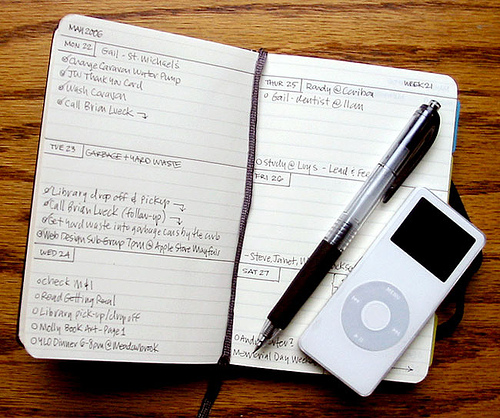 MAY 2006
MON 22 Gail - St. Michael's
Change Caravan Water Pump
JW Thank You Card
Wash Caravan
Call Brian Lueck
TUE 23 GARBAGE + HARD WASTE
Library drop off & pickup
Call Brian Lueck (follow-up)
Get hard waste into garbage cans by the curb
Web Design SubGroup 7pm @ Apple Store Mayfair
WED 24
check M+I
Read Getting Real
Library pick-up/drop off
Molly Book Art - Page 1
YLO Dinner 6-8pm @ Meadowbrook
THUR 25 Randy @ Caribou WEEK 21
Gail - dentist @ 11am
study @ Luy's - Lead & Fee
FRI 26
- Steve, Janet,
SAT 27
Memorial Day Week
MENU